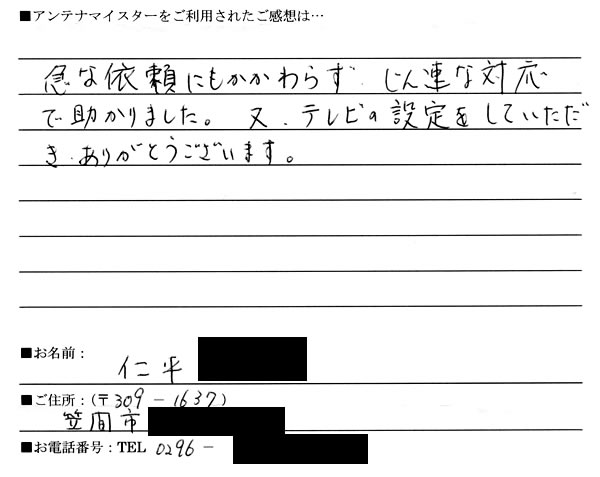 ■アンテナマイスターをご利用されたご感想は…
急な依頼にもかかわらず、じん速な対応
で助かりました。又、テレビの設定をしていただ
き、ありがとうございます。
■お名前：
仁平
■ご住所：(〒309-1637)
笠間市
■お電話番号：TEL 0296-